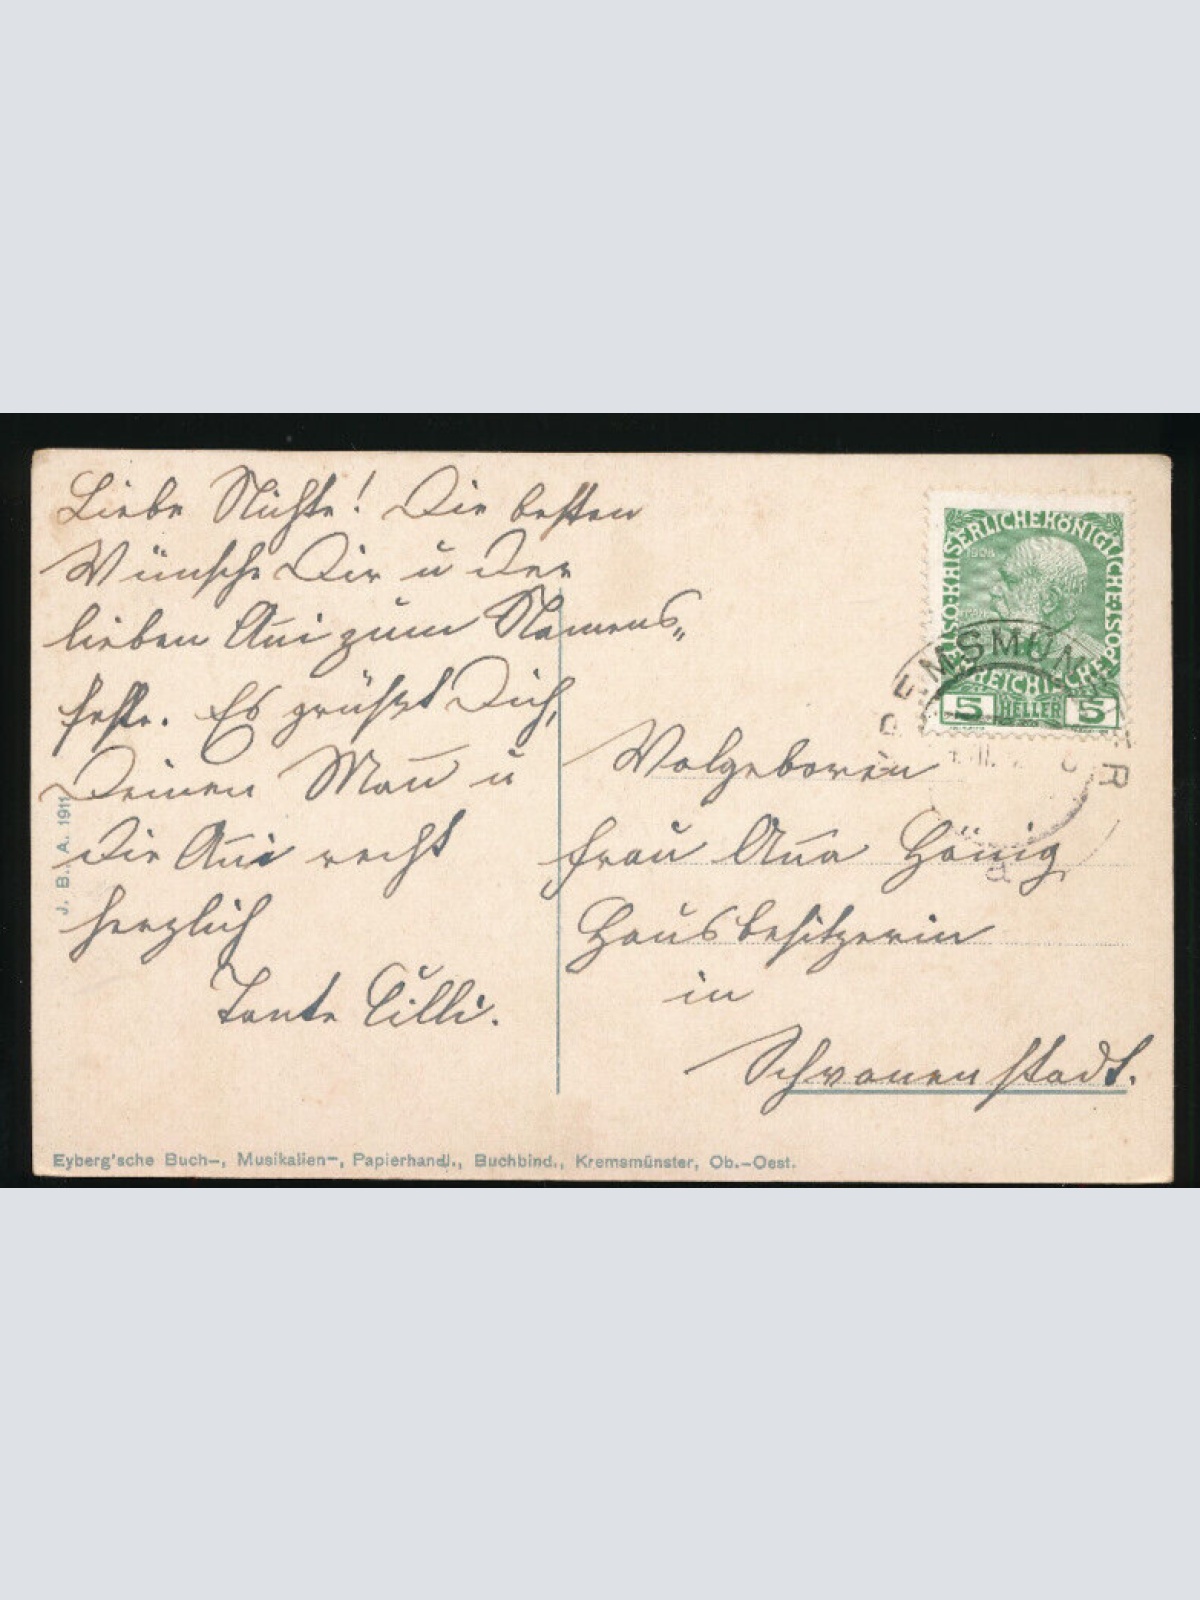 Liebe Nichte! Die besten
Wünsche Dir u der
lieben Ani zum Namens„
feste. Es grüßt Dich,
Deinen Mañ u
die Ani recht
herzlich
Tante Cilli.
Wolgeboren
Frau Aña Hönig
Hausbesitzerin
in
Schwanenstadt.
KAISERLICHE KÖNIGLICHE ÖSTERREICHISCHE POST
1908
5 HELLER 5
KREMSMÜNSTER
J. B., A. 1911
Eyberg'sche Buch-, Musikalien-, Papierhandl., Buchbind., Kremsmünster, Ob.-Oest.